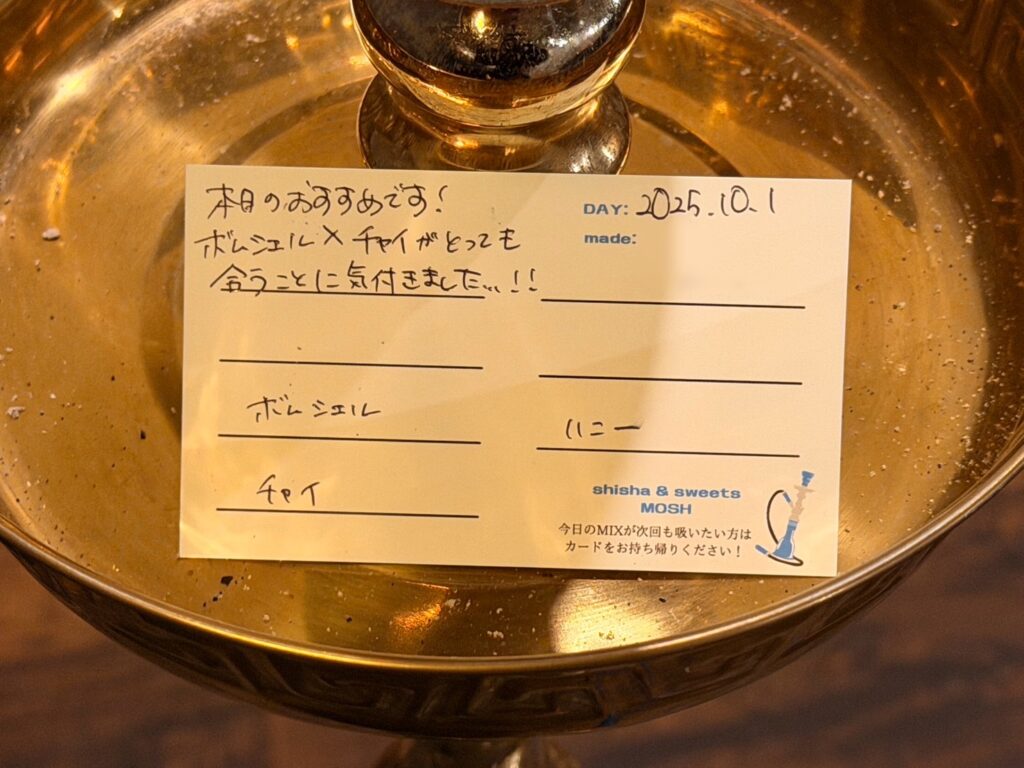 本日のおすすめです!
ボムシェル×チャイがとっても
合うことに気付きました...!!
DAY: 2025.10.1
made:
ボムシェル
ハニー
チャイ
shisha & sweets
MOSH
今日のMIXが次回も吸いたい方は
カードをお持ち帰りください!